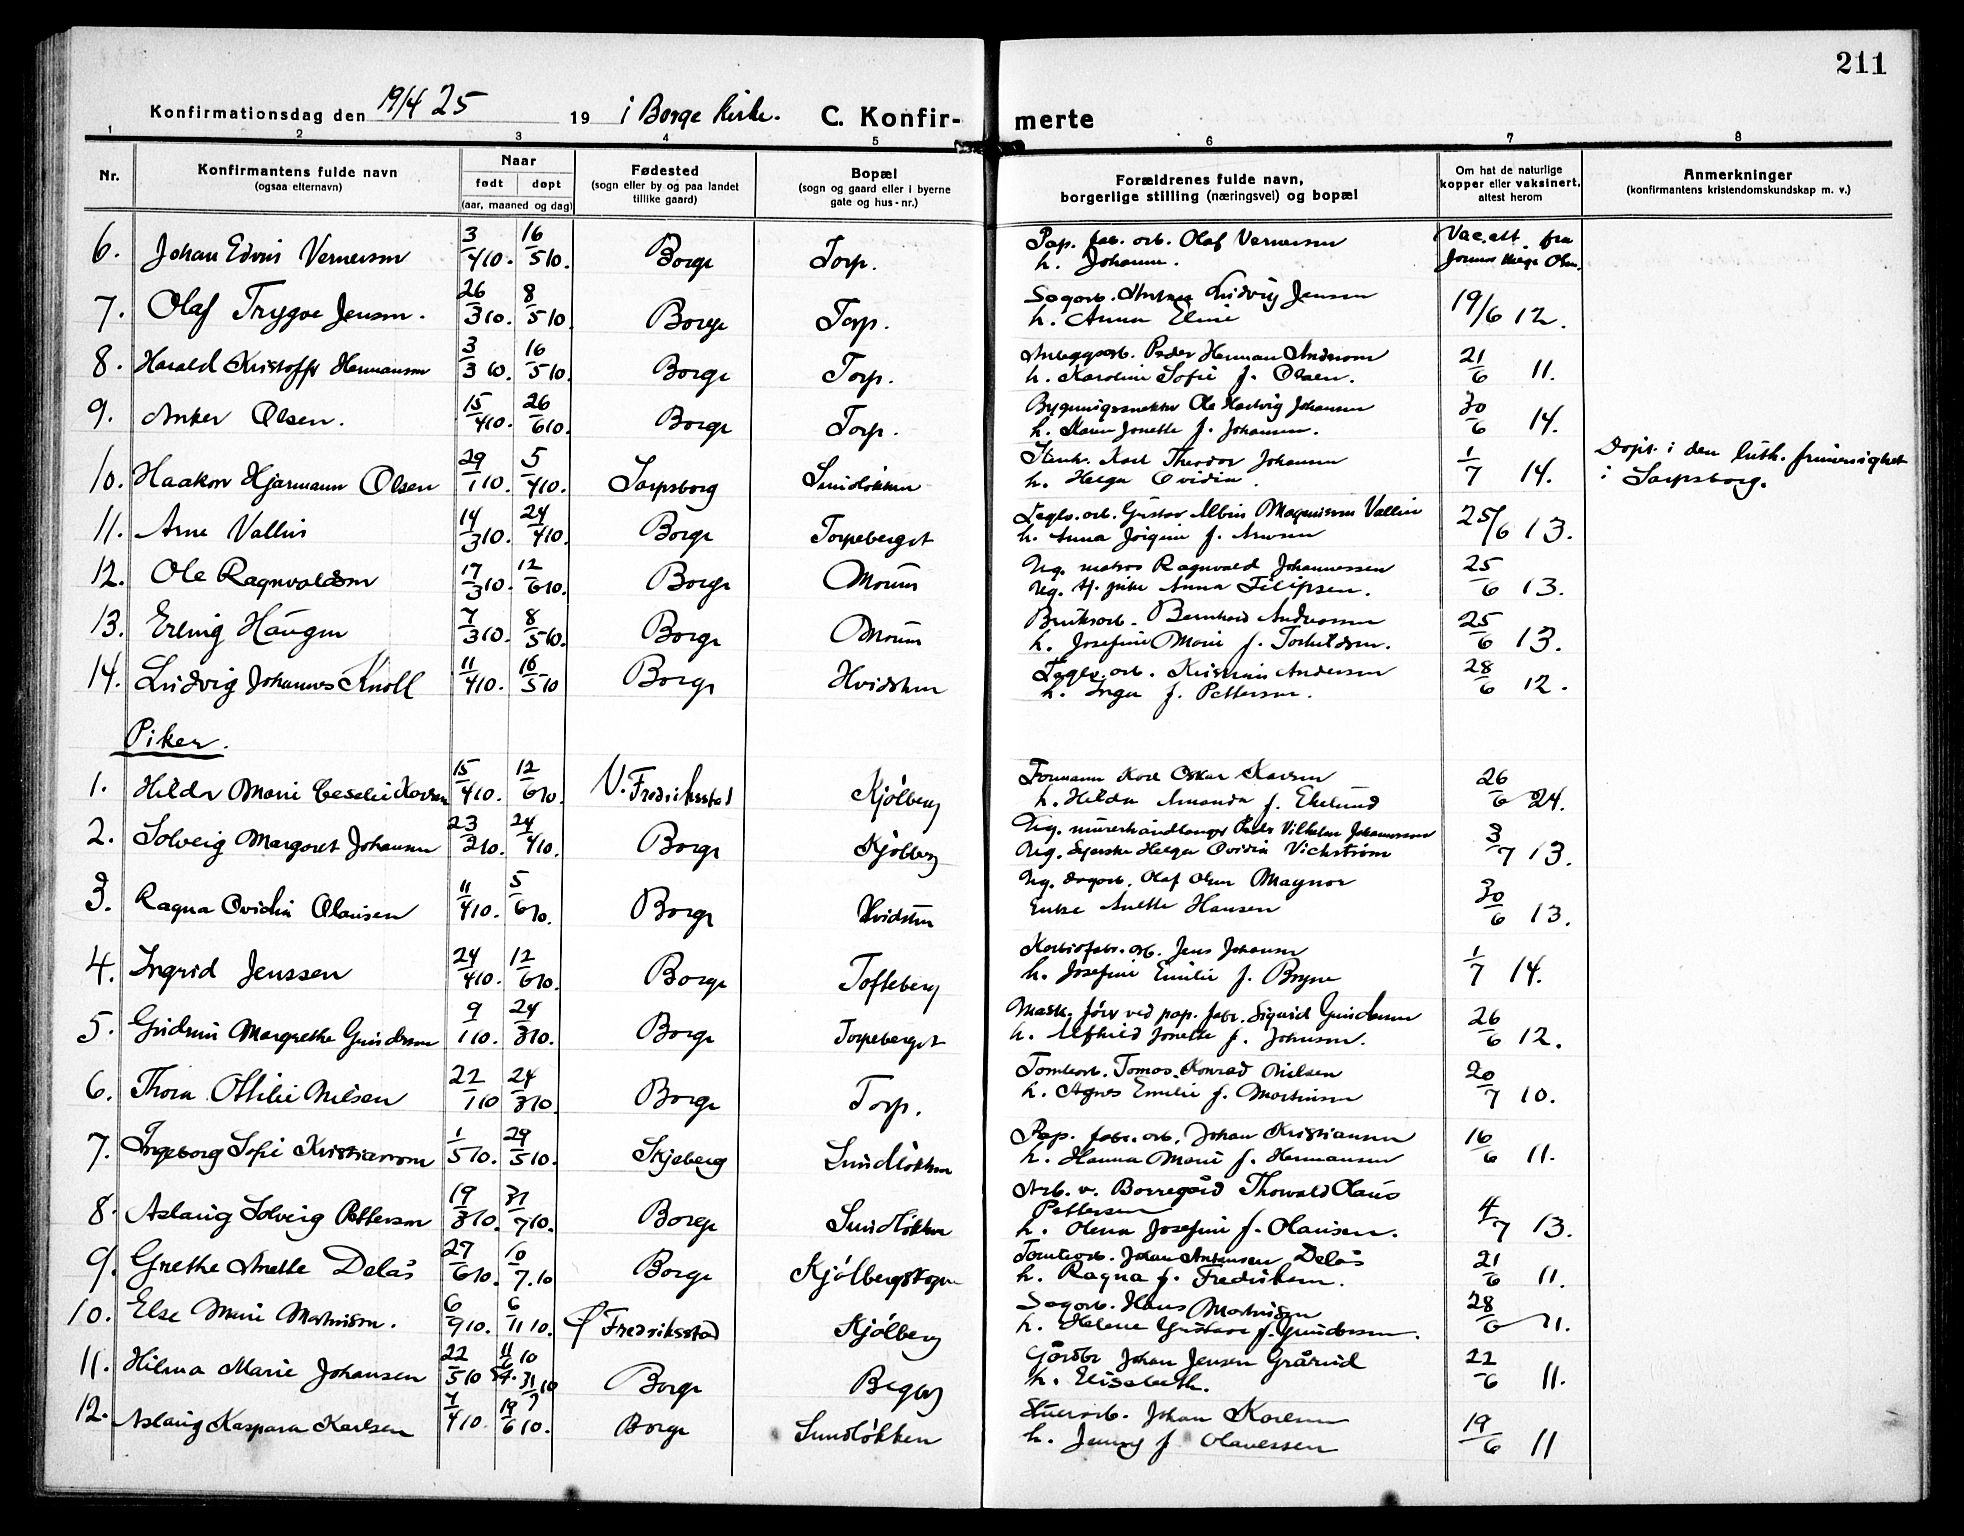 211
Konfirmationsdag den 19/4 25 19 i Borge kirke. C. Konfirmerte
1 2 3 4 5 6 7 8
Nr. Konfirmantens fulde navn (ogsaa elternavn) Naar født døpt (aar, maaned og dag) Fødested (sogn eller by og paa landet tillike gaard) Bopæl (sogn og gaard eller i byerne gate og hus-nr.) Forældrenes fulde navn, borgerlige stilling (næringsvei) og bopæl Om hat de naturlige kopper eller vaksinert, attest herom Anmerkninger (konfirmantens kristendomskundskap m. v.)
6. Johan Edvin Vernersen 3/4 10. 16/5 10. Borge Torp. Pap. fab. arb. Olaf Vernersen Vac. att. fra
h. Johanne.
7. Olaf Trygve Jensen. 26/3 10. 8/5 10. Borge Torp. Sagarb. Ludvig Jensen 19/6 12.
h. Anna Eline
8. Harald Kristoffer Hermansen 3/3 10. 16/5 10. Borge Torp. Anlægsarb. Peder Herman Andersen 21/6 11.
h. Karoline Sofie f. Olsen.
9. Anker Olsen. 15/4 10. 26/6 10. Borge Torp. Ole Hartvig Johansen 30/6 14.
h. Karen Jonette f. Johansen.
10. Haakon Hjarmann Olsen 29/1 10. 5/4 10. Sarpsborg Sundløkken Stenh. Karl Theodor Johansen 1/7 14. Døpt i den luth. frimenighet
h. Helga Ovidia. i Sarpsborg.
11. Arne Vallin 14/3 10. 24/4 10. Borge Torpeberget Teglv. arb. Gustav Albin Magnusson Vallin 25/6 13.
h. Anna Jørgine f. Arnesen
12. Ole Ragnvaldsen 17/3 10. 12/6 10. Borge Moum Ug. matros Ragnvald Johannessen 25/6 13.
Ug. tj. pike Anna Filipsen.
13. Erling Haugen 7/3 10. 8/5 10. Borge Moum Bruksarb. Bernhard Andreassen 25/6 13.
h. Josefine Marie f. Torkildsen.
14. Ludvig Johannes Knoll 11/4 10. 16/5 10 Borge Hvidsten Teglv. arb. Kristian Andersen 28/6 12.
h. Inga f. Pettersen.
Piker.
1. Hilda Marie Cecelie Karlsen 15/4 10. 12/6 10. V. Fredriksstad Kjølberg Formann Karl Oskar Karlsen 26/6 24.
h. Hilda Amanda f. Ekelund
2. Solveig Margaret Johansen 23/2 10. 24/4 10. Borge Kjølberg Ug. murerhåndlanger Peder Vilhelm Johannessen 3/7 13.
Ug. Syerske Helga Ovidia Vickstrøm
3. Ragna Ovidia Olausen 11/4 10. 5/6 10. Borge Hvidsten Ug. dagarb. Olaf Olsen Magnor 30/6 13.
Enke Anette Hansen
4. Ingrid Jenssen 24/4 10. 12/6 10. Borge Tofteberg Karbidfabr. arb. Jens Johansen 1/7 14.
h. Josefine Emilie f. Bryne
5. Gudrun Margrethe Gundersen 9/1 10. 24/3 10. Borge Torpeberget Mask. fører ved pap. fabr. Sigurd Gundersen 26/6 12.
h. Alfhild Jonette f. Johnsen.
6. Thora Ottilie Nilsen 22/1 10 24/3 10. Borge Torp. Tomtearb. Tomas Konrad Nilsen 20/7 10.
h. Agnes Emilie f. Martinsen
7. Ingeborg Sofie Kristiansen 1/5 10. 29/5 10. Skjeberg Sundløkken Pap. fabr. arb. Johan Kristiansen 16/6 11.
h. Hanna Marie f. Hermansen
8. Aslaug Solveig Pettersen 19/3 10. 31/7 10. Borge Sundløkken Arb. v. Borregård Thorvald Olaus
Pettersen 4/7 13.
h. Olena Josefine f. Olausen.
9. Grethe Anette Delås 27/6 10. 10/7. 10 Borge Kjølbergskogen Tomtearb. Johan Antonsen Delås 21/6 11.
h. Ragna f. Fredriksen.
10. Else Marie Martinsen. 6/9 10. 6/11 10. Ø Fredriksstad Kjølberg Sagarb. Hans Martinsen 28/6 21.
h. Helene Gustava f. Gundersen.
11. Hilma Marie Johansen 22/5 10 11/6 10 31/7 10 Borge Begby Gårdbr Johan Jensen Grårud 22/6 11.
h. Elisabeth.
12. Aslaug Kaspara Karlsen 7/4 10. 19/6 10. Borge Sundløkken Stuerarb. Johan Karlsen 19/6 11
h. Jenny f. Olavessen